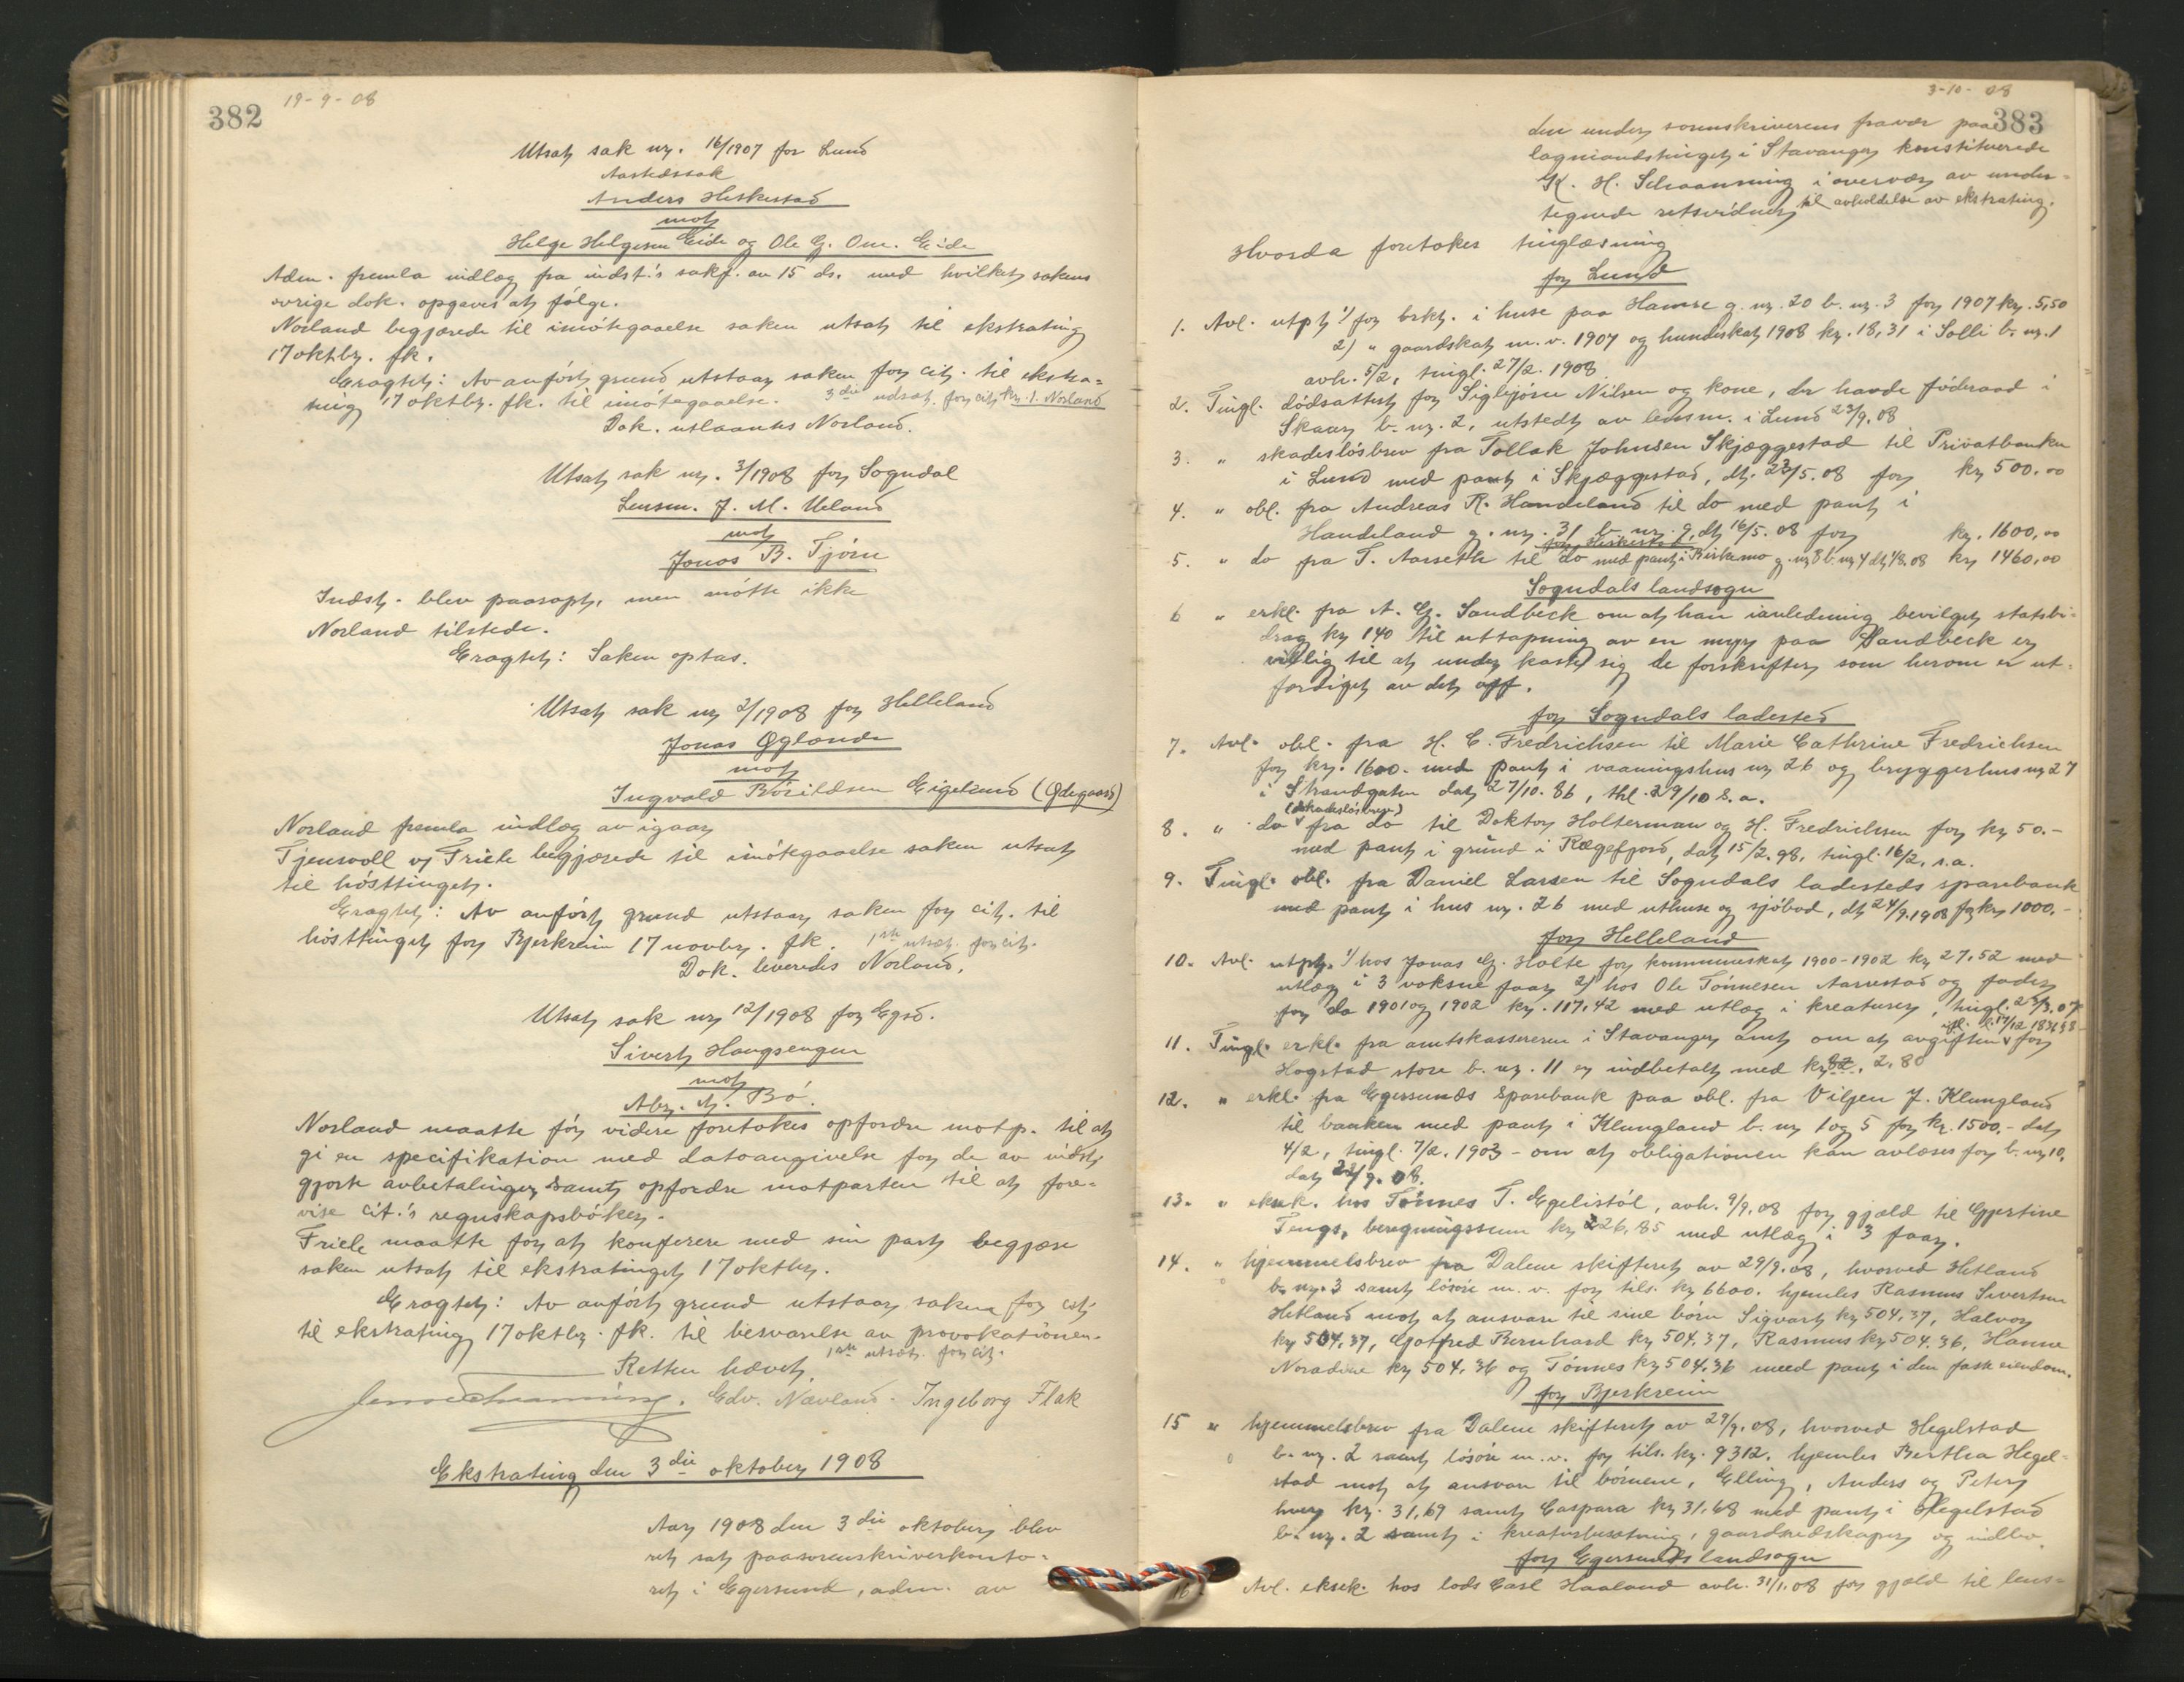 382
19-9-08
Utsat sak nr. 16/1907 for Lund
Aastedssak
Anders Heskestad
mot
Helge Helgesen Eide og Ole G. Om. Eide
Adm. fremla indlæg fra indst.'s sakf. av 15 ds. med hvilket sakens
øvrige dok. opgaves at følge.
Norland begjærede til imøtegaaelse saken utsat til ekstrating
17 oktbr. fk.
Eragtet: Av anført grund utstaar saken for cit. til ekstra-
ting 17 oktbr. fk. til imøtegaaelse. 3die udsæt. for cit. kr. 1. Norland
Dok. utlaantes Norland.
Utsat sak nr. 3/1908 for Sogndal
Lensm. J. M. Ueland
mot
Jonas B. Tjörn
Indst. blev paaropt, men møtte ikke
Norland tilstede.
Eragtet: Saken optas.
Utsat sak nr 2/1908 for Helleland
Jonas Øglænde
mot
Ingvald Eigeland (Ødegaard)
Norland fremla indlæg av igaar
Tjensvoll v/ Friele begjærede til imøtegaaelse saken utsat
til høsttinget.
Eragtet: Av anført grund utstaar saken for cit. til
høsttinget for Bjerkreim 17 novbr. fk. 1ste utsæt. for cit.
Dok. leveredes Norland.
Utsat sak nr 12/1908 for Egsd.
Sivert Haugsengen
mot
Abr. A. Bø.
Norland maatte før videre foretokes opfordre motp. til at
gi en specifikation med datoangivelse for de av indst.
gjorte avbetalinger samt opfordre motparten til at fore-
vise cit.'s regnskapsbøker.
Friele maatte for at konferere med sin part begjære
saken utsat til ekstratinget 17 oktbr.
Eragtet: Av anført grund utstaar saken for cit.
til ekstrating 17 oktbr. fk. til besvarelse av provokationen.
1ste utsæt. for cit.
Retten hævet
Edv. Nævland. Ingeborg Flak
Ekstrating den 3die oktober 1908
Aar 1908 den 3die oktober blev
ret sat paa sorenskriverkonto-
ret i Egersund, adm. av
3-10-08
383
den under sorenskriverens fravær paa
lagmandstinget i Stavanger konstituerede
K. H. Schaanning i overvær av under-
tegnede retsvidner til avholdelse av ekstrating.
Hvorda foretokes tinglæsning
for Lund
1. Avl. utpt. 1/ for brkt. i huse paa Hamre g. nr. 20 b. nr. 3 for 1907 kr. 5,50
2) " gaardskat m. v. 1907 og hundeskat 1908 kr. 18,31 i Solli b. nr. 1
avh. 5/2, tingl. 27/2. 1908
2. Tingl. dödsattest for Sigbjörn Nilsen og kone, der havde föderaad i
Skaar b. nr. 2, utstedt av lensm. i Lund 23/9. 08
3. " skadeslösbrev fra Tollak Johnsen Skjæggestad til Privatbanken
i Lund med pant i Skjæggestad, dt. 23/5. 08 for kr 500.00
4. " obl. fra Andreas R. Handeland til do med pant i
Handeland g. nr. 31 b. nr. 9, dt 16/5. 08 for kr. 1600,00
for Heskestad
5. " do fra T. Aarseth til do med pant i Kirkemo g. nr 8 b. nr 4 dt 1/8. 08 kr 1460,00
Sogndals landsogn
6 " erkl. fra A. G. Sandbeck om at han i anledning bevilget statsbi-
drag kr 140 til uttapning av en myr paa Sandbeck er
villig til at underkaste sig de forskrifter som herom er ut-
færdiget av det off.
for Sogndals ladested
7. Avl. obl. fra H. C. Fredrichsen til Marie Cathrine Fredrichsen
for kr. 1600.- med pant i vaaningshus nr 26 og bryggerhus nr 27
i Strandgaten dat 27/10. 86, thl. 29/10 s. a.
(skadeslösbrev)
8. " do fra do til Doktor Holterman og H. Fredrichsen for kr 50.-
med pant i grund i Rægefjord, dat 15/2. 98, tingl. 16/2. s. a.
9. Tingl. obl. fra Daniel Larsen til Sogndals ladesteds sparebank
med pant i hus nr. 26 med uthuse og sjöbod, dt 24/9. 1908 for kr 1000.-
for Helleland
10. Avl. utpt. 1/ hos Jonas G. Holte for kommuneskat 1900-1902 kr 27,52 med
utlæg i 3 voksne faar 2/ hos Ole Tönnesen Aarrestad og fader
for do 1901 og 1902 kr. 117,42 med utlæg i kreaturer, tingl. 23/3. 07
11. Tingl. erkl. fra amtskassereren i Stavanger amt om at avgiften ifl. k. 17/12 1836 § 8 for
Hogstad store b. nr. 11 er indbetalt med kr 2,80
12. " erkl. fra Egersunds Sparebank paa obl. fra Viljen J. Klungland
til banken med pant i Klungland b. nr 1 og 5 for kr. 1500.- dat
4/2, tingl. 7/2. 1903 - om at obligationen kan avlæses for b. nr 10,
dat 22/9. 08.
13. " eksek. hos Tönnes T. Egelistöl, avh. 9/9. 08 for gjæld til Gjertine
Tengs, beregningssum kr 226,85 med utlæg i 3 faar.
14. " hjemmelsbrev fra Dalene skifteret av 29/9. 08, hvorved Hetland
b. nr. 3 samt lösöre m. v. for tils. kr 6600. hjemles Rasmus Sivertsen
Hetland mot at ansvare til sine börn Sigvart kr 504,37, Halvor
kr 504,37, Gotfred Bernhard kr 504,37, Rasmus kr 504,36, Hanne
Noradine kr 504,36 og Tönnes kr 504,36 med pant i den faste eiendom.
for Bjerkreim
15 " hjemmelsbrev fra Dalene skifteret av 29/9. 08, hvorved Hegelstad
b. nr. 2 samt lösöre m. v. for tils. kr. 9312. hjemles Berthea Hegel-
stad mot at ansvare til börnene, Elling, Anders og Peter
hver kr. 31,69 samt Caspara kr 31,68 med pant i Hegelstad
b. nr. 2 samt i kreaturbesætning, gaardsredskaper og indbo.
for Egersunds landsogn
16 Avl. eksek. hos lods Carl Haaland avh. 31/1. 08 for gjæld til lens-